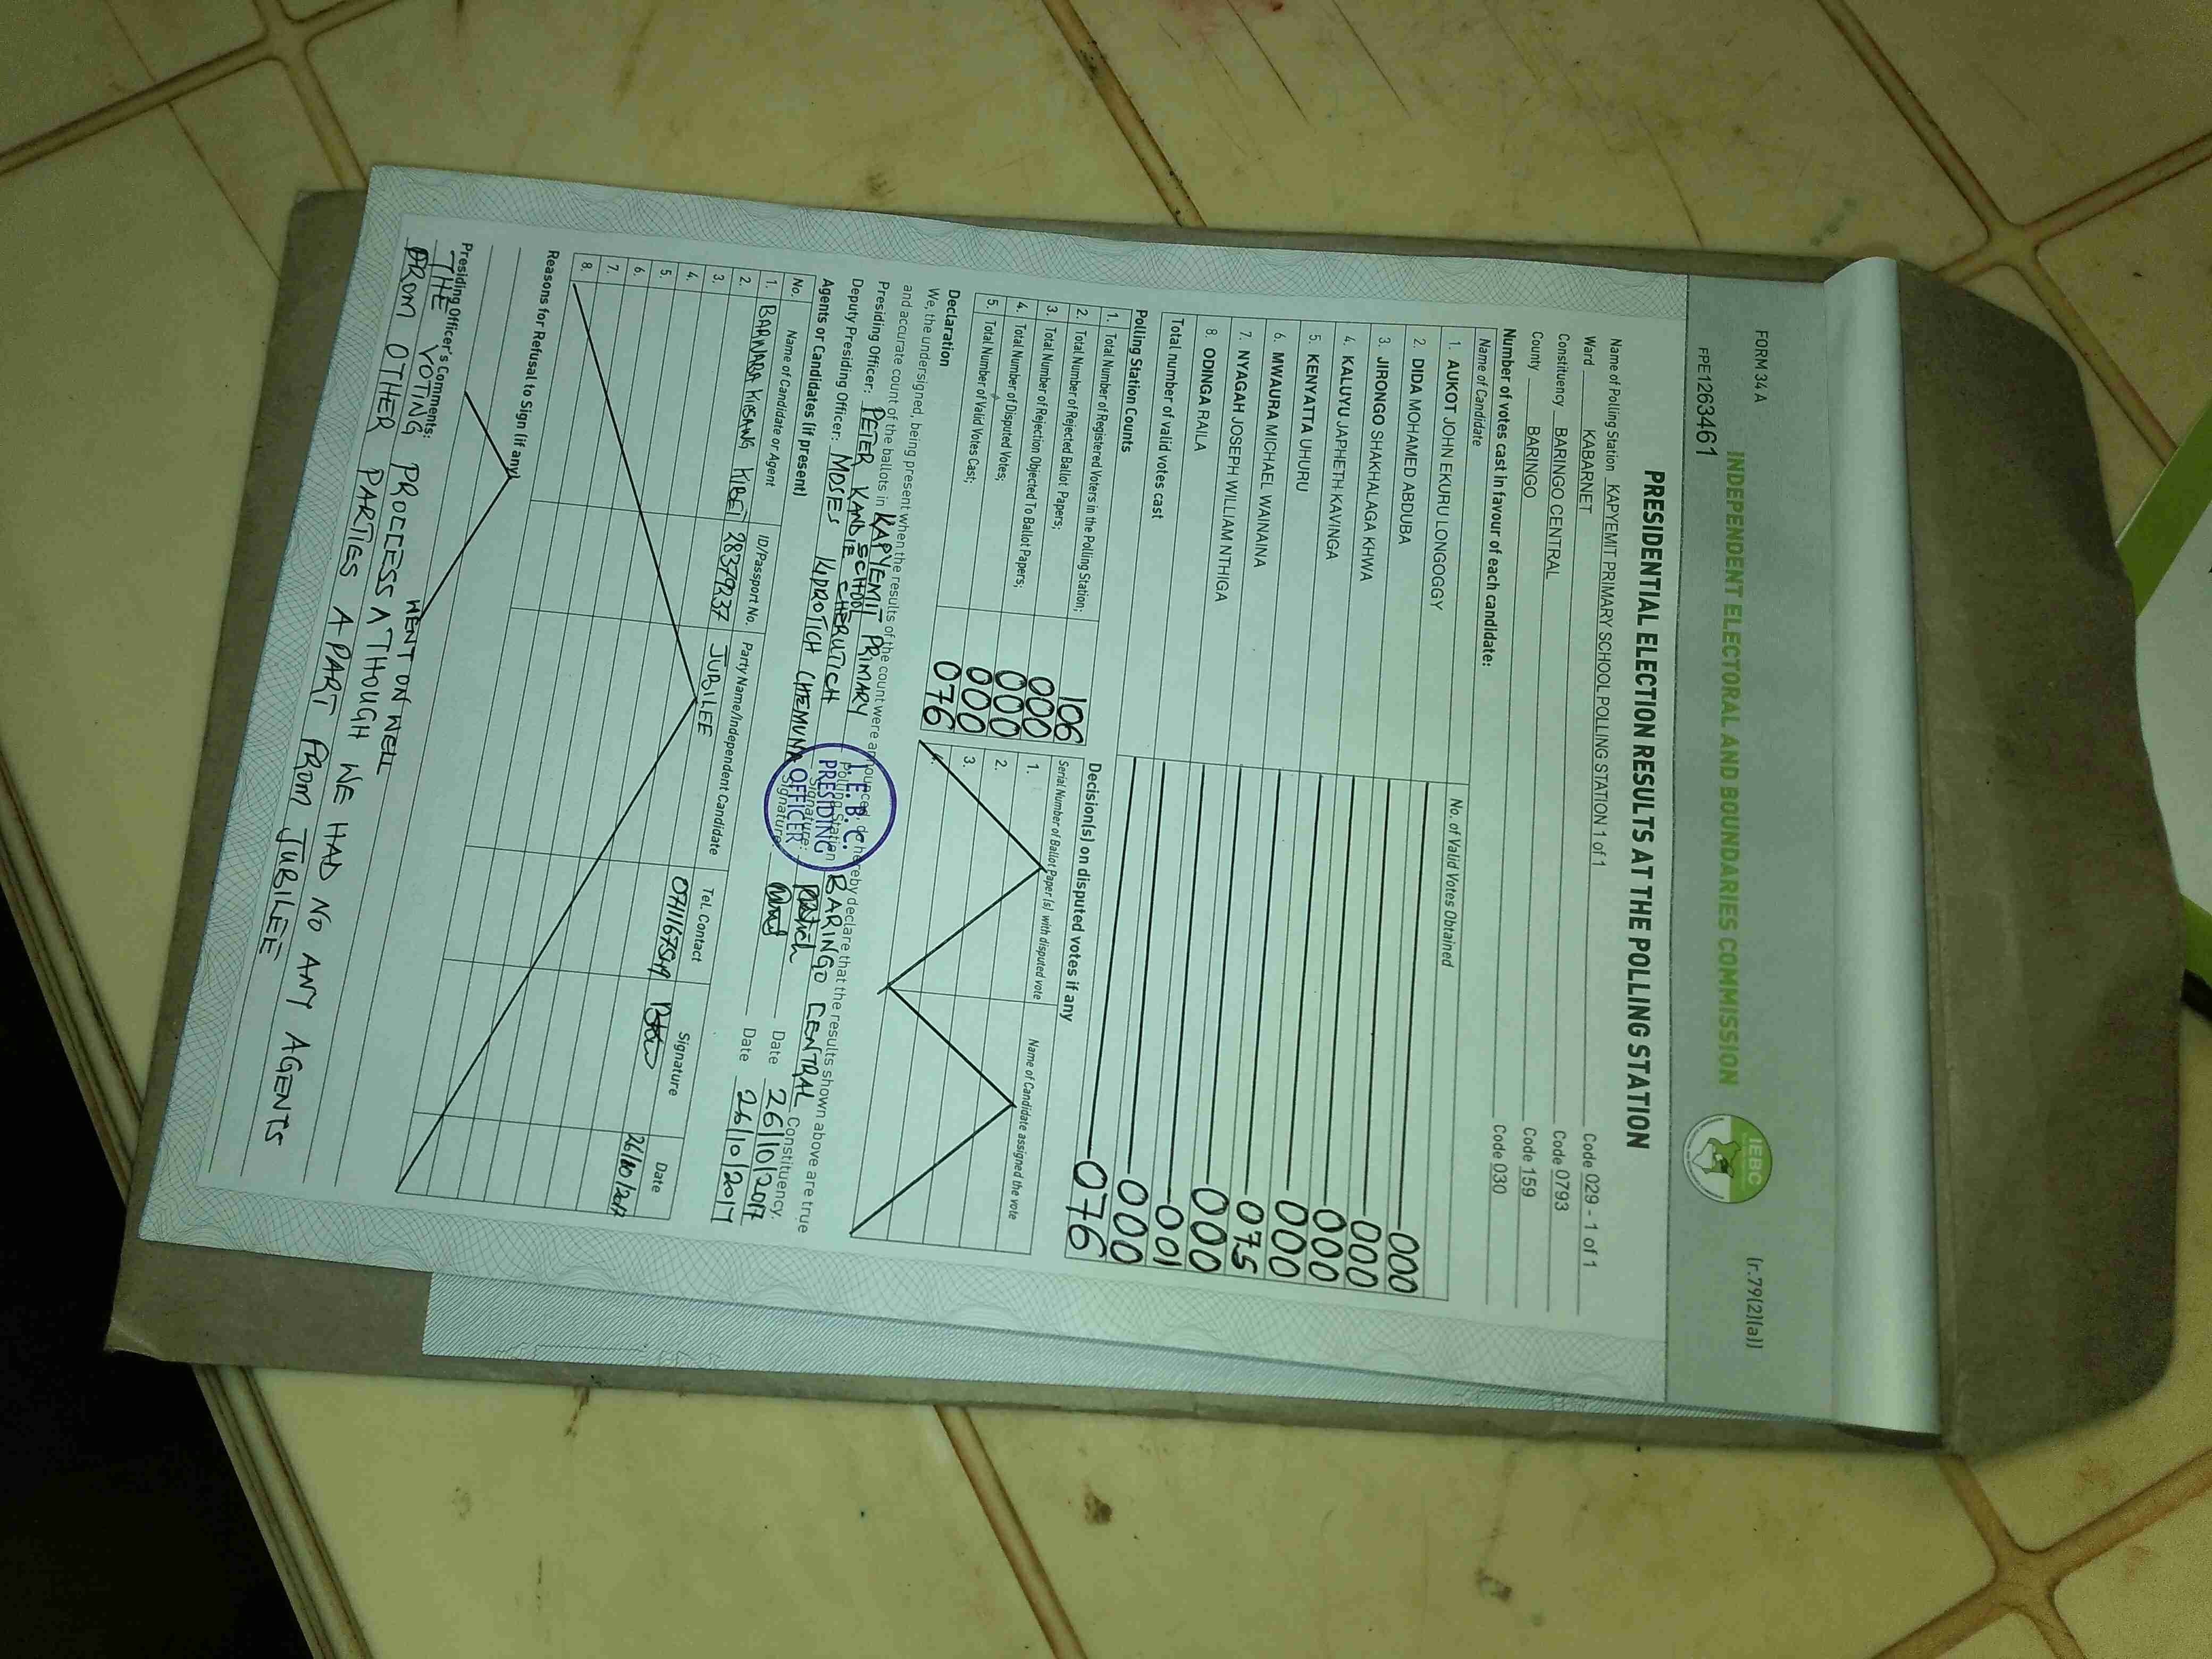 FORM 34 A
(r.79(2)(a))
FPE1263461
INDEPENDENT ELECTORAL AND BOUNDARIES COMMISSION
IEBC
PRESIDENTIAL ELECTION RESULTS AT THE POLLING STATION
Name of Polling Station KAPYEMIT PRIMARY SCHOOL POLLING STATION 1 of 1 Code 029 - 1 of 1
Ward KABARNET Code 0793
Constituency BARINGO CENTRAL Code 159
County BARINGO Code 030
Number of votes cast in favour of each candidate:
Name of Candidate No. of Valid Votes Obtained
1. AUKOT JOHN EKURU LONGOGGY 000
2. DIDA MOHAMED ABDUBA 000
3. JIRONGO SHAKHALAGA KHWA 000
4. KALUYU JAPHETH KAVINGA 000
5. KENYATTA UHURU 075
6. MWAURA MICHAEL WAINAINA 000
7. NYAGAH JOSEPH WILLIAM NTHIGA 001
8. ODINGA RAILA 000
Total number of valid votes cast 076
Polling Station Counts
1. Total Number of Registered Voters in the Polling Station; 106
2. Total Number of Rejected Ballot Papers; 000
3. Total Number of Rejection Objected To Ballot Papers; 000
4. Total Number of Disputed Votes; 000
5. Total Number of Valid Votes Cast; 076
Decision(s) on disputed votes if any
Serial Number of Ballot Paper(s) with disputed vote Name of Candidate assigned the vote
1.
2.
3.
4.
Declaration
We, the undersigned, being present when the results of the count were announced, do hereby declare that the results shown above are true
and accurate count of the ballots in KAPYEMIT PRIMARY SCHOOL Polling Station BARINGO CENTRAL Constituency.
Presiding Officer: PETER KANDIE CHERUTICH Signature: Date 26/10/2017
Deputy Presiding Officer: MOSES KIPROTICH CHEMUNA Signature: Date 26/10/2017
I.E.B.C.
PRESIDING
OFFICER
Agents or Candidates (if present)
No. Name of Candidate or Agent ID/Passport No. Party Name/Independent Candidate Tel. Contact Signature Date
1. BARNABA KIBSANG KIBET 28379237 JUBILEE
2.
3.
4.
5.
6.
7.
8.
Reasons for Refusal to Sign (if any)
Presiding Officer's Comments:
WENT ON WELL
THE VOTING PROCCESS ATHOUGH WE HAD NO ANY AGENTS
FROM OTHER PARTIES APART FROM JUBILEE